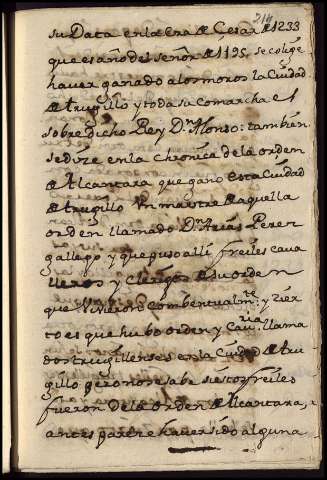 214
su Data en la era de Cesar de 1233
que es año del señor de 1195. se colige
haver ganado a los moros la Ciudad
de trugillo y toda su Comarcha el
sobre dicho Rey Dn. Alonso: tambien
se dize en la Chronica de la orden
de Alcantara que gano esta Ciudad
de trugillo Un maestre de aquella
orden llamado Dn. Arias Perez
gallego y que puso alli freiles cava
lleros y Clerigos de su orden
que Vivieron Combentualmte: y zier
to es que hubo orden y Cavrios. llama
dos trugillenses en la Ciudad de tru
gillo pero no se sabe si estos freiles
fueron de la orden de Alcantara, i
antes pareze haver sido alguna